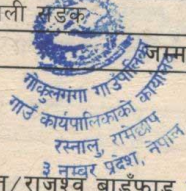 ली सडक
जम्म
गोकुलगंगा गाउँपालिका
गाउँ कार्यपालिकाको कार्यालय
रस्नालु, रामेछाप
३ नम्बर प्रदेश, नेपाल
न/राजश्व बाडँफाड